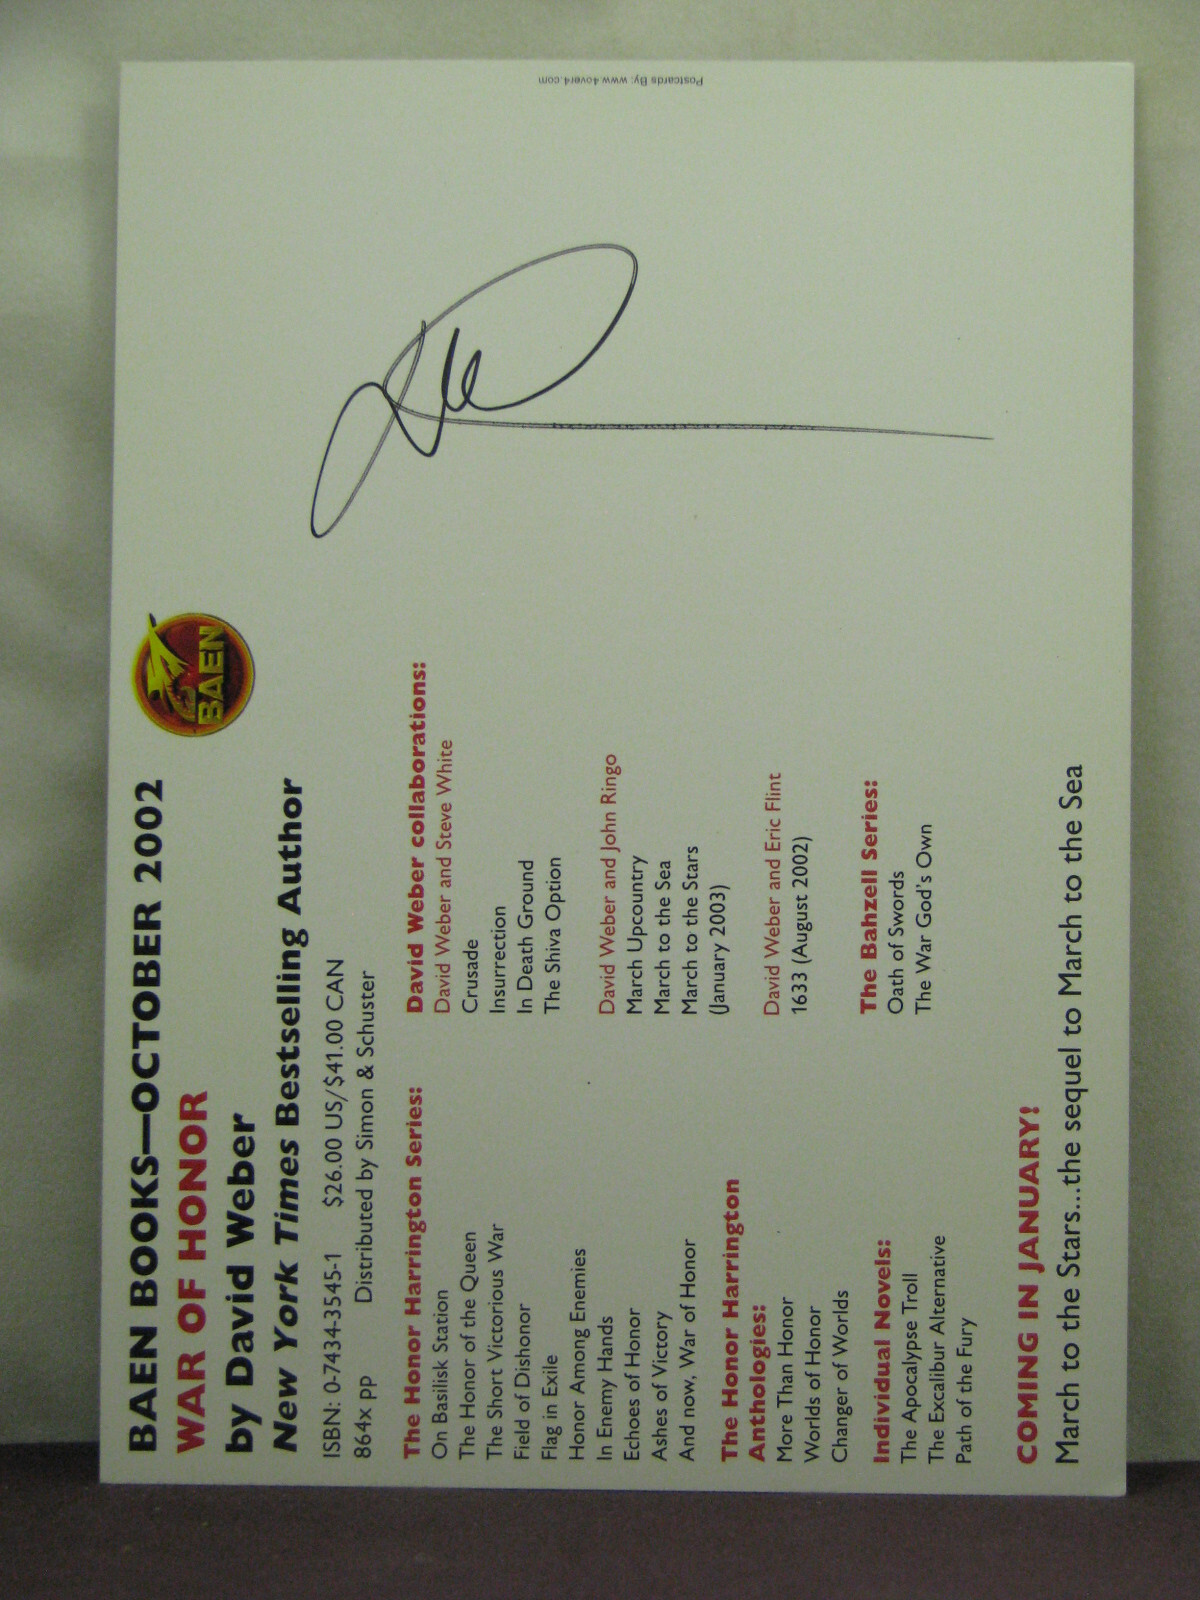 BAEN BOOKS—OCTOBER 2002
WAR OF HONOR
by David Weber
New York Times Bestselling Author
ISBN: 0-7434-3545-1 $26.00 US/$41.00 CAN
864x pp Distributed by Simon & Schuster
BAEN
The Honor Harrington Series:
On Basilisk Station
The Honor of the Queen
The Short Victorious War
Field of Dishonor
Flag in Exile
Honor Among Enemies
In Enemy Hands
Echoes of Honor
Ashes of Victory
And now, War of Honor
The Honor Harrington
Anthologies:
More Than Honor
Worlds of Honor
Changer of Worlds
Individual Novels:
The Apocalypse Troll
The Excalibur Alternative
Path of the Fury
David Weber collaborations:
David Weber and Steve White
Crusade
Insurrection
In Death Ground
The Shiva Option
David Weber and John Ringo
March Upcountry
March to the Sea
March to the Stars
(January 2003)
David Weber and Eric Flint
1633 (August 2002)
The Bahzell Series:
Oath of Swords
The War God's Own
COMING IN JANUARY!
March to the Stars...the sequel to March to the Sea
Postcards By: www.4over4.com